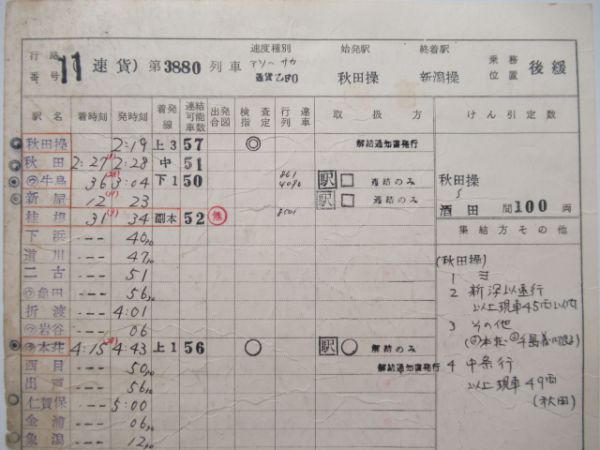 行路番号 11 速貨) 第3880列車 速度種別 アリ～サカ 通貨乙B0 始発駅 秋田操 終着駅 新潟操 乗務位置 後緩
駅名 着時刻 発時刻 着発線 連結可能車数 出発合図 検査 査定指 行違列車 取扱方 けん引定数
秋田操 2:19 上3 57 ◎ 解結通知書発行
秋田 2:27 2:28 中 51
㋒牛島 36 3:04 下1 50 861 駅 連結のみ
新屋 12 23 駅 連結のみ
桂根 31 34 副本 52 無
下浜 --- 40
道川 --- 47
二古 --- 51
㋒亀田 --- 56
折渡 --- 4:01
㋒岩谷 --- 06
㋒本荘 4:15 4:43 上1 56 駅 解結のみ
西目 --- 50 解結通知書発行
出戸 --- 56
仁賀保 --- 5:00
金浦 --- 06
象潟 --- 12
秋田操
～
酒田 間100両
集結方その他
(秋田操)
1 ヨ
2 新深以遠行
以上現車45両以内
3 その他
4 中条行
以上現車49両
(秋田)